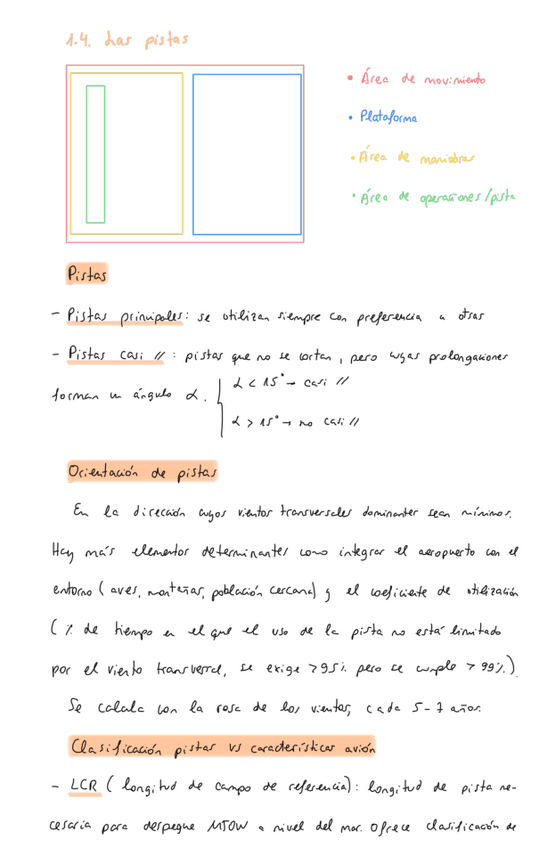 1.4. Las pistas
• Área de movimiento
• Plataforma
• Área de maniobras
• Área de operaciones/pista
Pistas
- Pistas principales: se utilizan siempre con preferencia a otras
- Pistas casi // : pistas que no se cortan, pero cuyas prolongaciones
forman un ángulo α.
α < 15° → casi //
α > 15° → no casi //
Orientación de pistas
En la dirección cuyos vientos transversales dominantes sean mínimos.
Hay más elementos determinantes como integrar el aeropuerto con el
entorno (aves, montañas, población cercana) y el coeficiente de utilización
(% de tiempo en el que el uso de la pista no está limitado
por el viento transversal, se exige >95% pero se cumple > 99%).
Se calcula con la rosa de los vientos, cada 5-7 años.
Clasificación pistas vs características avión
- LCR (longitud de campo de referencia): longitud de pista ne-
cesaria para despegue MTOW a nivel del mar. Ofrece clasificación de